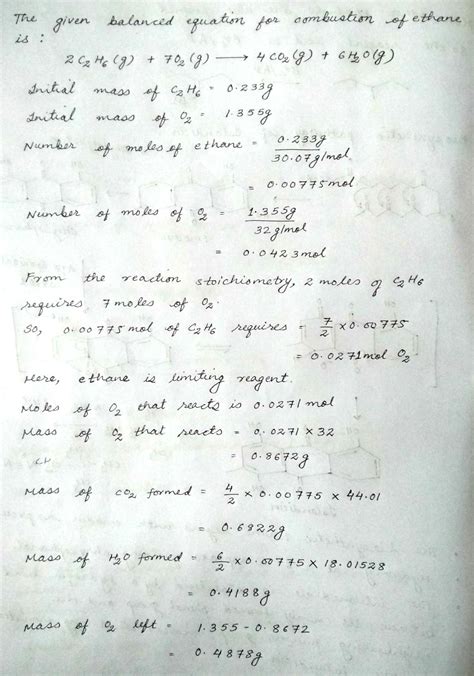 The given balanced equation for combustion of ethane
is :
2C₂H₆(g) + 7O₂(g) ⟶ 4CO₂(g) + 6H₂O(g)
Initial mass of C₂H₆ = 0.233g
Initial mass of O₂ = 1.355g
Number of moles of ethane = 0.233g
30.07g/mol
= 0.00775mol
Number of moles of O₂ = 1.355g
32g/mol
= 0.0423mol
From the reaction stoichiometry, 2 moles of C₂H₆
requires 7 moles of O₂.
So, 0.00775 mol of C₂H₆ requires = 7/2 × 0.00775
= 0.0271mol O₂.
Here, ethane is limiting reagent.
Moles of O₂ that reacts is 0.0271 mol
Mass of O₂ that reacts = 0.0271 × 32
= 0.8672g
Mass of CO₂ formed = 4/2 × 0.00775 × 44.01
= 0.6822g
Mass of H₂O formed = 6/2 × 0.00775 × 18.01528
= 0.4188g
Mass of O₂ left = 1.355 - 0.8672
= 0.4878g